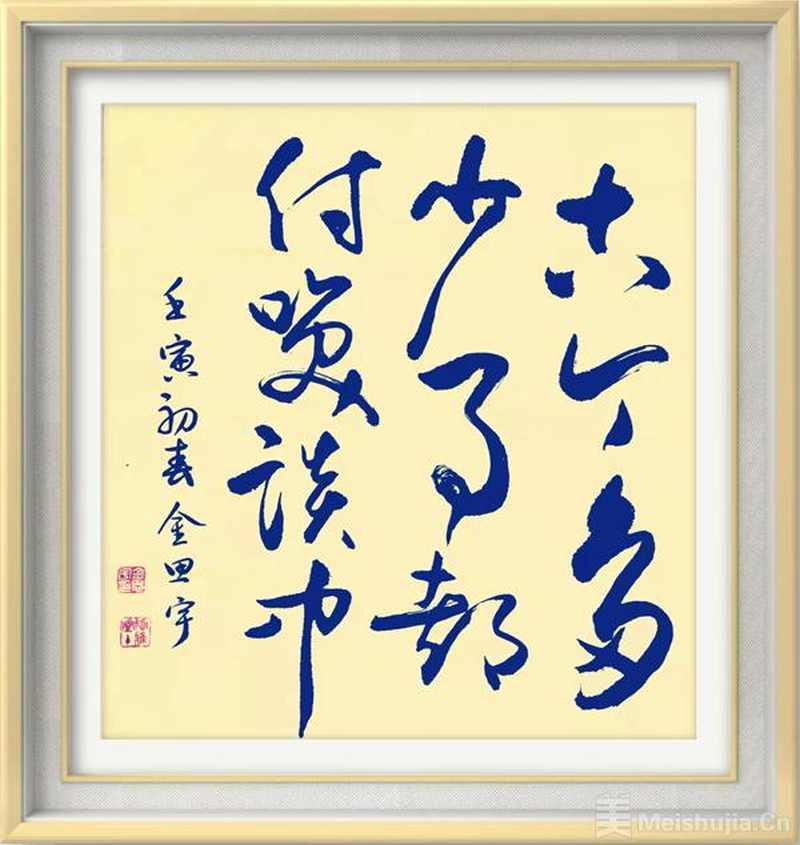 古今多
少事都
付笑談中
壬寅初春金思宇
Meishujia.Cn